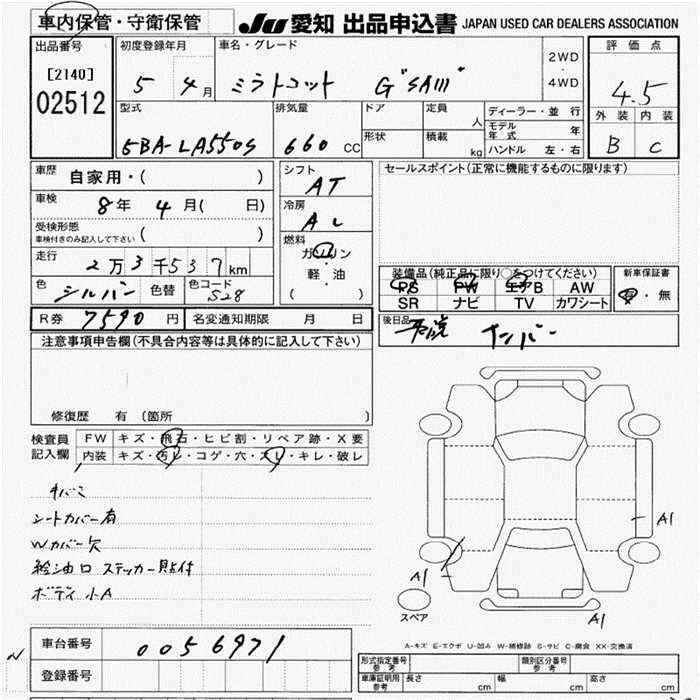 車内保管・守衛保管
JU 愛知 出品申込書 JAPAN USED CAR DEALERS ASSOCIATION
出品番号
[2140]
02512
初度登録年月
5 4月
車名・グレード
ミラトコット G"SAⅢ"
2WD
・
4WD
評価点
4.5
外装 内装
B C
型式
5BA-LA550S
排気量
660 CC
ドア
形状
定員
人
積載
kg
ディーラー・並行
モデル年式 年
ハンドル 左・右
車歴 自家用・( )
車検 8年 4月( 日)
受検形態
車検付きのみ記入して下さい ( )
走行 2万3千537km
色 シルバー 色替 色コード S28
シフト
AT
冷房
AC
燃料
ガソリン
・
軽・油
( )
セールスポイント(正常に機能するものに限ります)
装備品(純正品に限り○をつけてください)
PS PW エアB AW
SR ナビ TV カワシート
新車保証書
有・無
R券 7590円 名変通知期限 月 日
後日品
取説 ナンバー
注意事項申告欄(不具合内容等は具体的に記入して下さい)
修復歴 有 (箇所
検査員
記入欄
FW キズ・飛石・ヒビ割・リペア跡・X要
内装 キズ・汚レ・コゲ・穴・スレ・キレ・破レ
シートカバー有
Wカバー欠
給油口 ステッカー貼付
ボディ 小A
A1
A1
A1
スペア
A-キズ E-エクボ U-凹み W-補修跡 S-サビ C-腐食 XX-交換済
車台番号 0056971
登録番号
形式指定番号
参考
類別区分番号
参考
車庫証明用
参考
長さ cm 幅 cm 高さ cm